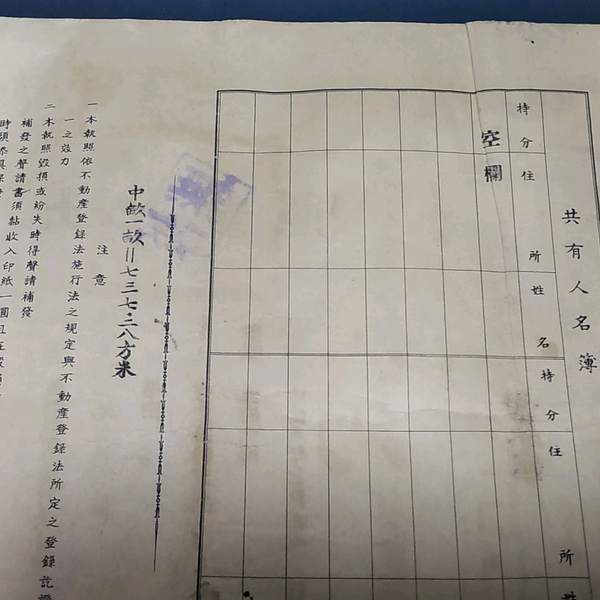 共有人名簿
持分 住 所 姓 名 持分 住 所 姓
空欄
中畝一畝=七三七·三八方米
注意
一 本執照依不動產登錄法施行法之規定與不動產登錄法所定之登錄訖證
一之效力
二 本執照毀損或紛失時得聲請補發
補發之聲請書須黏收入印紙一圓且
時須添具保